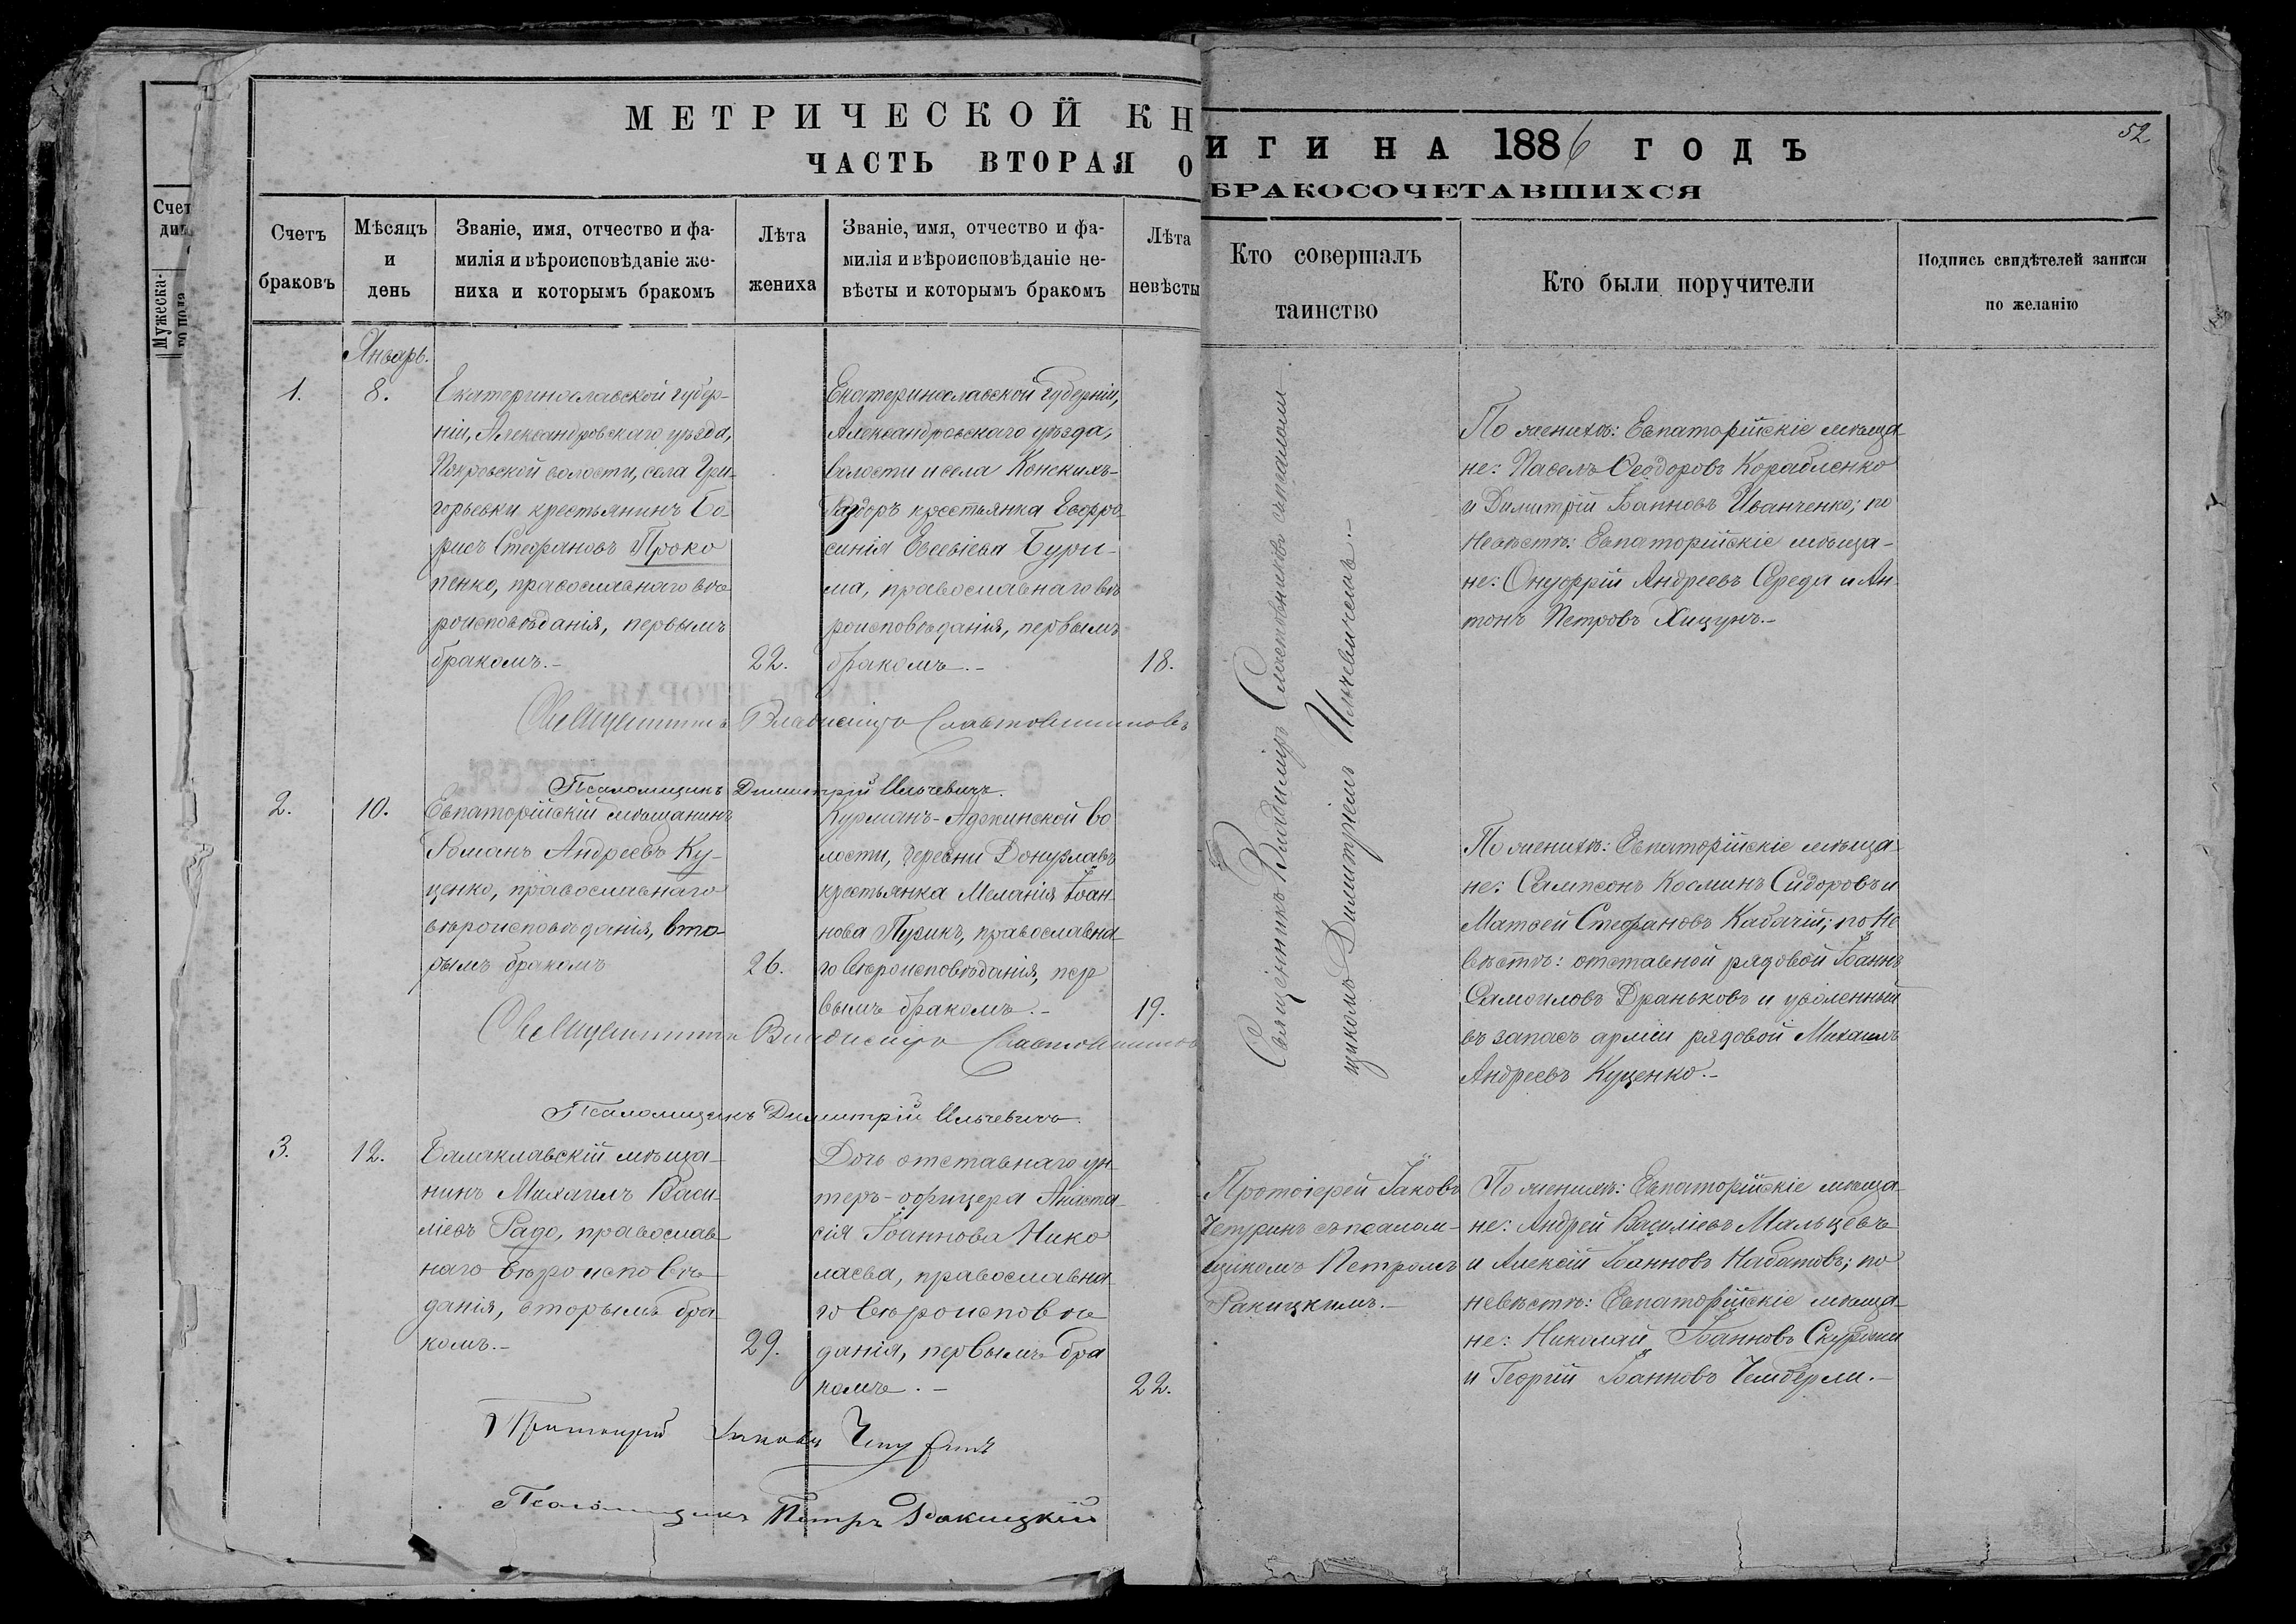 МЕТРИЧЕСКОЙ КНИГИ НА 1886 ГОДЪ
52
ЧАСТЬ ВТОРАЯ О БРАКОСОЧЕТАВШИХСЯ
Счетъ
браковъ
Мѣсяцъ
и
день
Званіе, имя, отчество и фа-
милія и вѣроисповѣданіе же-
ниха и которымъ бракомъ
Лѣта
жениха
Званіе, имя, отчество и фа-
милія и вѣроисповѣданіе не-
вѣсты и которымъ бракомъ
Лѣта
невѣсты
Кто совершалъ
таинство
Кто были поручители
Подпись свидѣтелей записи
по желанію
Январь.
1.
8.
Екатеринославской губер-
ніи, Александровскаго уѣзда,
Покровской волости, села Гри-
горьевки крестьянинъ Бо-
рисъ Стефановъ Проко
пенко, православнаго вѣ
роисповѣданія, первымъ
бракомъ.-
22.
Екатеринославской губерніи,
Александровскаго уѣзда,
волости и села Конскихъ-
Раздоръ крестьянка Евфро
синія Евсевіева Бури-
ма, православнаго вѣ
роисповѣданія, первымъ
бракомъ.-
18.
Священникъ Владиміръ Сластовниковъ съ псалом
щикомъ Димитріемъ Ильчевичемъ.-
По женихѣ: Евпаторійскіе мѣща
не: Павелъ Ѳеодоровъ Корабленко
и Димитрій Іоанновъ Иванченко; по
невѣстѣ: Евпаторійскіе мѣща-
не: Онуфрій Андреевъ Середа и Ан
тонъ Петровъ Хицунъ.-
Священникъ Владиміръ Сластовниковъ
Псаломщикъ Димитрій Ильчевичъ.
2.
10.
Евпаторійскій мѣщанинъ
Романъ Андреевъ Ку-
ценко, православнаго
вѣроисповѣданія, вто-
рымъ бракомъ
26.
Курманъ-Аджинской во
лости, деревни Донузлавъ
крестьянка Меланія Іоан-
нова Пузикъ, православна-
го вѣроисповѣданія, пер
вымъ бракомъ.-
19.
По женихѣ: Евпаторійскіе мѣща
не: Сампсонъ Косминъ Сидоровъ и
Матѳей Стефановъ Кабачій; по не
вѣстѣ: отставной рядовой Іоаннъ
Самоиловъ Драньковъ и уволенный
въ запасъ арміи рядовой Михаилъ
Андреевъ Куценко.-
Священникъ Владиміръ Сластовниковъ
Псаломщикъ Димитрій Ильчевичъ.
3.
12.
Балаклавскій мѣща-
нинъ Михаилъ Васи-
ліевъ Радо, православ
наго вѣроисповѣ
данія, вторымъ бра
комъ.-
29.
Дочь отставнаго ун
теръ-офицера Анаста
сія Іоаннова Нико
лаева, православна
го вѣроисповѣ
данія, первымъ бра
комъ.-
22.
Протоіерей Іаковъ
Чепуринъ съ псалом-
щикомъ Петромъ
Ракицкимъ.-
По женихѣ: Евпаторійскіе мѣща
не: Андрей Василіевъ Мальцевъ
и Алексій Іоанновъ Набатовъ; по
невѣстѣ: Евпаторійскіе мѣща-
не: Николай Іоанновъ
и Георгій Іоанновъ Чемберли.-
Протоіерей Іаковъ Чепуринъ
Псаломщикъ Петръ Ракицкій
Счет
Мужеска-
го пола